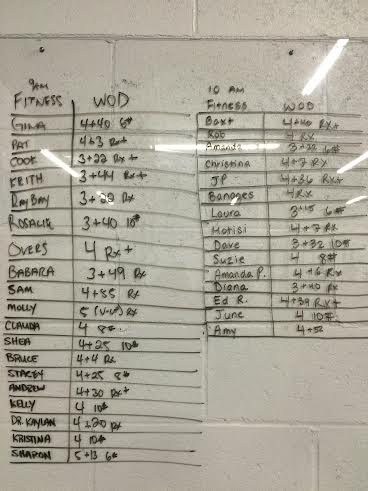 9AM
FITNESS WOD
GINA 4+40 6#
PAT 4+3 Rx+
COOK 3+22 Rx+
KEITH 3+44 Rx+
RAYBAY 3+22 Rx
ROSALIE 3+40 10#
OVERS 4 Rx+
BABARA 3+49 Rx
SAM 4+55 Rx
MOLLY 5 Rx
CLAUDIA 4 8#
SHEA 4+25 10#
BRUCE 4+4 Rx
STACEY 4+25 8#
ANDREW 4+30 Rx+
KELLY 4 10#
DR. KAYLAN 4+20 Rx
KRISTINA 4 10#
SHARON 5+13 6#
10 AM
Fitness WOD
Baxt 4+40 RX+
Rob 4 RX
Amanda 3+22 6#
Christina 4+7 RX
JP 4+36 RX+
Banages 4 RX
Laura 3+15 6#
Hatisi 4+7 RX
Dave 3+32 10#
Suzie 4 8#
Amanda P. 4+6 RX
Diana 3+40 RX
Ed R. 4+39 RX+
June 4 10#
Amy 4+52